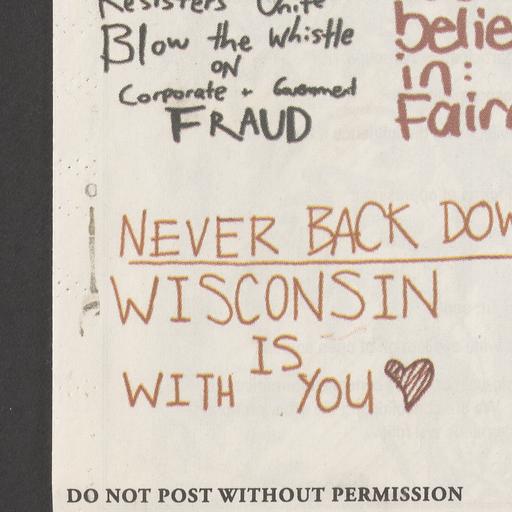 Resisters Unite
Blow the Whistle
ON
Corporate + Government
FRAUD
belie
in:
Fair
NEVER BACK DOW
WISCONSIN
IS
WITH YOU
DO NOT POST WITHOUT PERMISSION